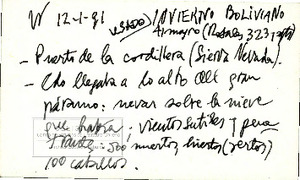 V 12-1-91 usado INVIERNO BOLIVIANO
Almagro (Rosales, 323,
- Puerto de la cordillera (Sierra Nevada).
- Cdo llegaba a lo alto del gran
páramo: nevar sobre la nieve
que había; vientos sutiles y
500 muertos, yertos (yertos)
100 caballos.